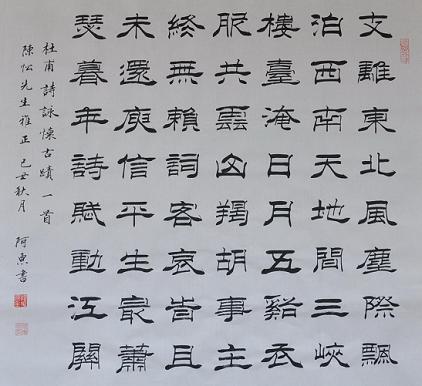 支離東北風塵際飄
泊西南天地間三峽
樓臺淹日月五谿衣
服共雲山羯胡事主
終無賴詞客哀旹且
未還庾信平生最蕭
瑟暮年詩賦動江關
杜甫詩詠懷古蹟一首
陳松先生雅正己丑秋月阿書